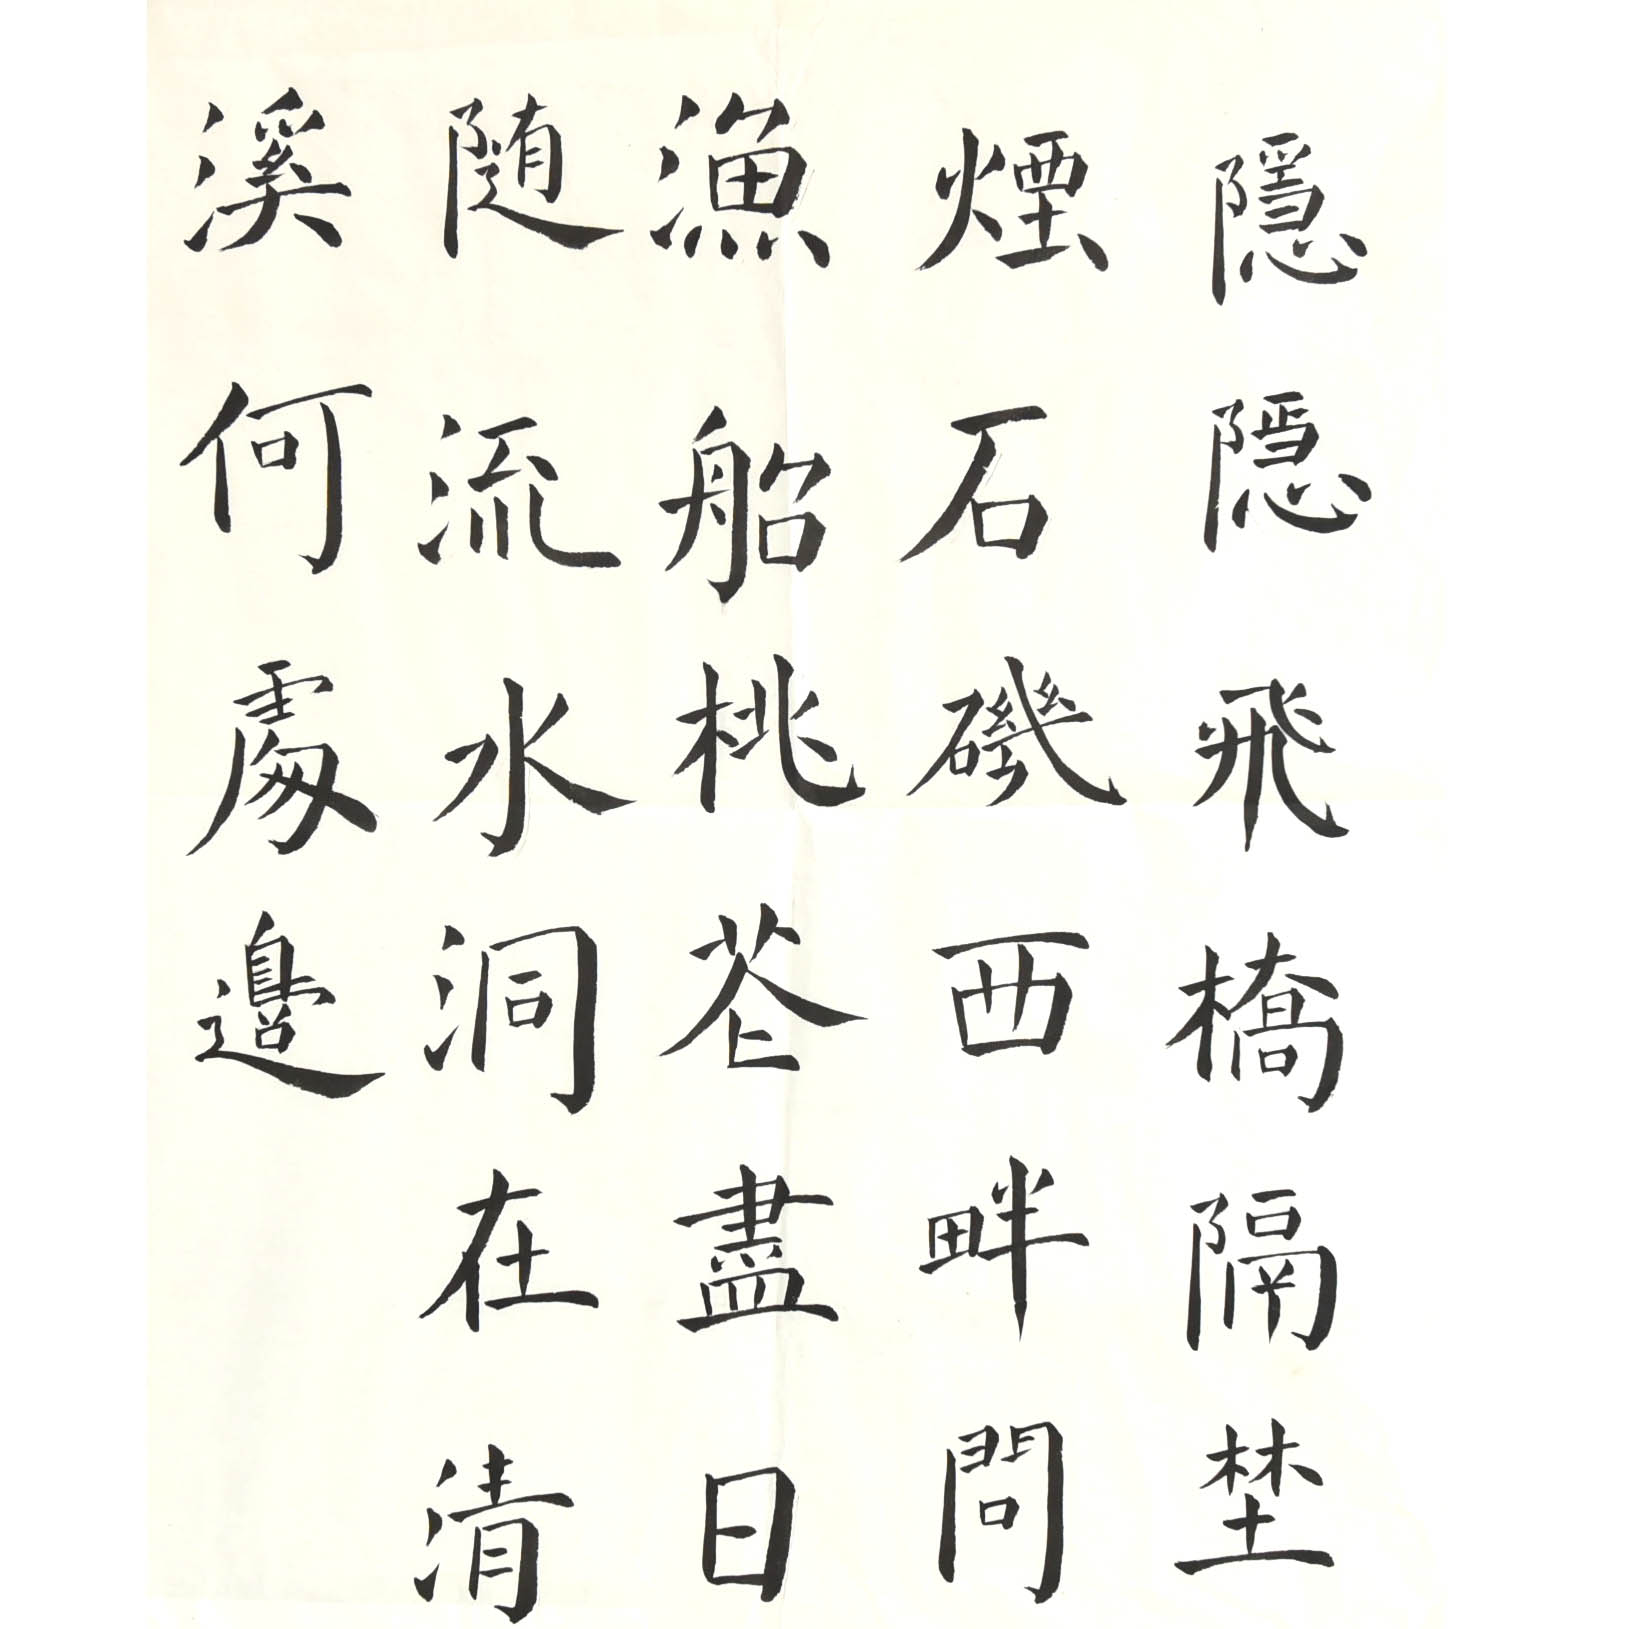 隱隱飛橋隔埜
煙石磯西畔問
漁船桃花盡日
随流水洞在清
溪何處邊